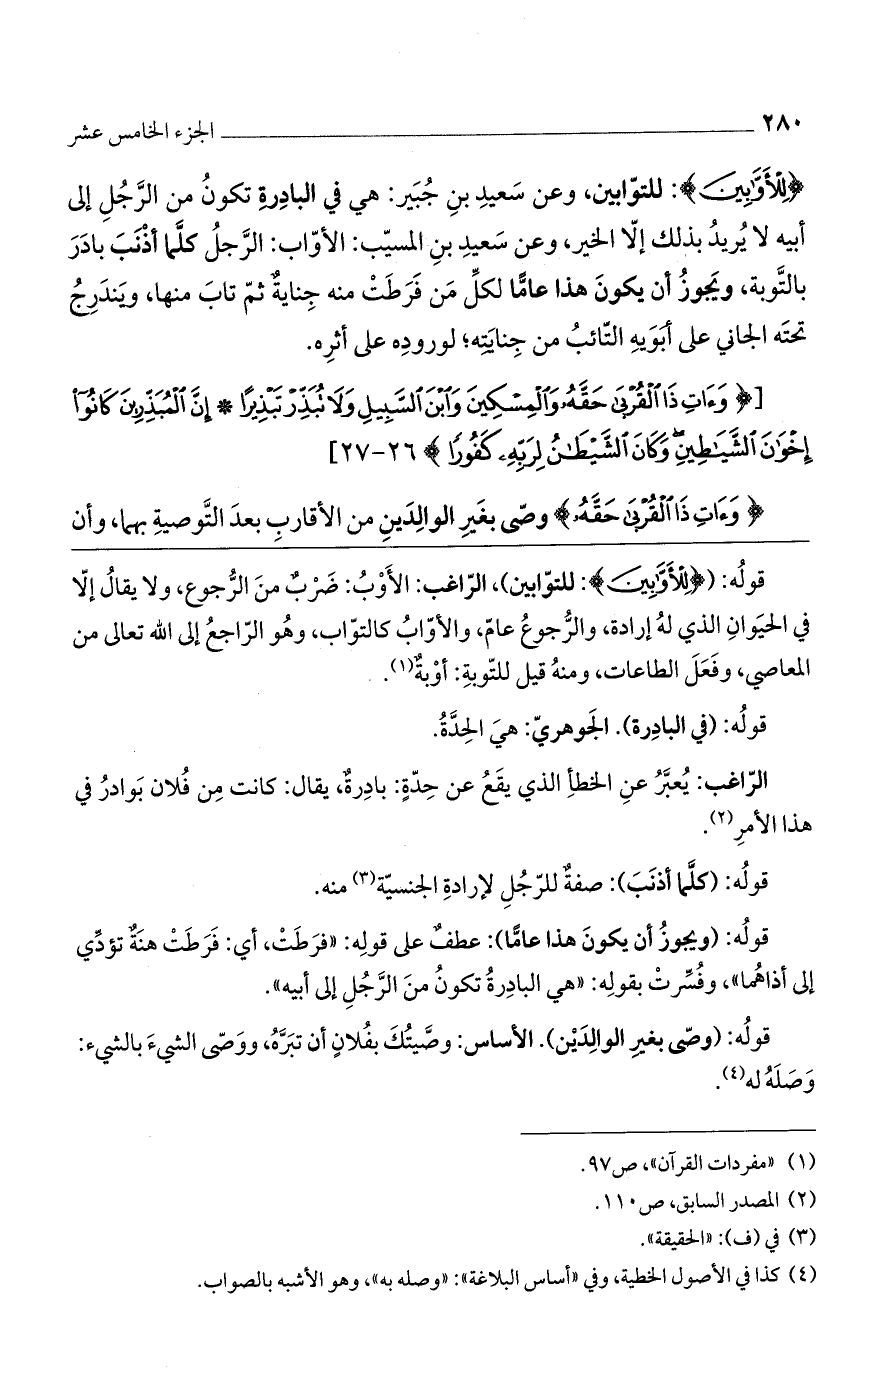 ٢٨٠ الجزء الخامس عشر
﴿لِلْأَوَّابِينَ﴾: للتوّابين، وعن سَعيدِ بنِ جُبَير: هي في البادِرةِ تكونُ من الرَّجُلِ إلى
أبيه لا يُريدُ بذلك إلّا الخير، وعن سَعيدِ بنِ المسيّب: الأوّاب: الرَّجلُ كلَّما أذْنَبَ بادَرَ
بالتَّوبة، ويَجوزُ أن يكونَ هذا عامًّا لكلِّ مَن فَرَطَتْ منه جِنايةٌ ثمّ تابَ منها، ويَندَرِجُ
تحتَه الجاني على أبَوَيهِ التّائبُ من جِنايَتِه؛ لورودِه على أثرِه.
[﴿ وَءَاتِ ذَا ٱلْقُرْبَىٰ حَقَّهُۥ وَٱلْمِسْكِينَ وَٱبْنَ ٱلسَّبِيلِ وَلَا نُبَذِّرْ تَبْذِيرًا * إِنَّ ٱلْمُبَذِّرِينَ كَانُوٓا۟
إِخْوَٰنَ ٱلشَّيَـٰطِينِ ۖ وَكَانَ ٱلشَّيْطَـٰنُ لِرَبِّهِۦ كَفُورًا ﴾ ٢٦-٢٧]
﴿ وَءَاتِ ذَا ٱلْقُرْبَىٰ حَقَّهُۥ﴾ وصّى بغَيرِ الوالِدَينِ من الأقاربِ بعدَ التَّوصيةِ بهما، وأن
قولُه: (﴿لِلْأَوَّابِينَ﴾: للتوّابين)، الرّاغب: الأَوْبُ: ضَرْبٌ منَ الرُّجوع، ولا يقالُ إلّا
في الحيَوانِ الذي لهُ إرادة، والرُّجوعُ عامّ، والأوّابُ كالتواب، وهُو الرّاجعُ إلى الله تعالى من
المعاصي، وفَعَلَ الطاعات، ومنهُ قيل للتّوبةِ: أوْبةٌ(١).
قولُه: (في البادِرة). الجَوهريّ: هيَ الحِدَّةُ.
الرّاغب: يُعبَّرُ عنِ الخطأِ الذي يقَعُ عن حِدّةٍ: بادِرةٌ، يقال: كانت مِن فُلان بَوادرُ في
هذا الأمرِ(٢).
قولُه: (كلَّما أذنَبَ): صفةٌ للرّجُلِ لإرادةِ الجنسيّة(٣) منه.
قولُه: (ويجوزُ أن يكونَ هذا عامًّا): عطفٌ على قولِه: «فرَطَتْ، أي: فَرَطَتْ هنَةٌ تؤدِّي
إلى أذاهُما»، وفُسِّرتْ بقولِه: «هي البادِرةُ تكونُ منَ الرَّجُلِ إلى أبيه».
قولُه: (وصّى بغيرِ الوالِدَيْن). الأساس: وصَّيتُكَ بفُلانٍ أن تبَرَّهُ، ووَصّى الشيءَ بالشيء:
وَصَلَهُ له(٤).
(١) «مفردات القرآن»، ص٩٧.
(٢) المصدر السابق، ص١١٠.
(٣) في (ف): «الحقيقة».
(٤) كذا في الأصول الخطية، وفي «أساس البلاغة»: «وصله به»، وهو الأشبه بالصواب.